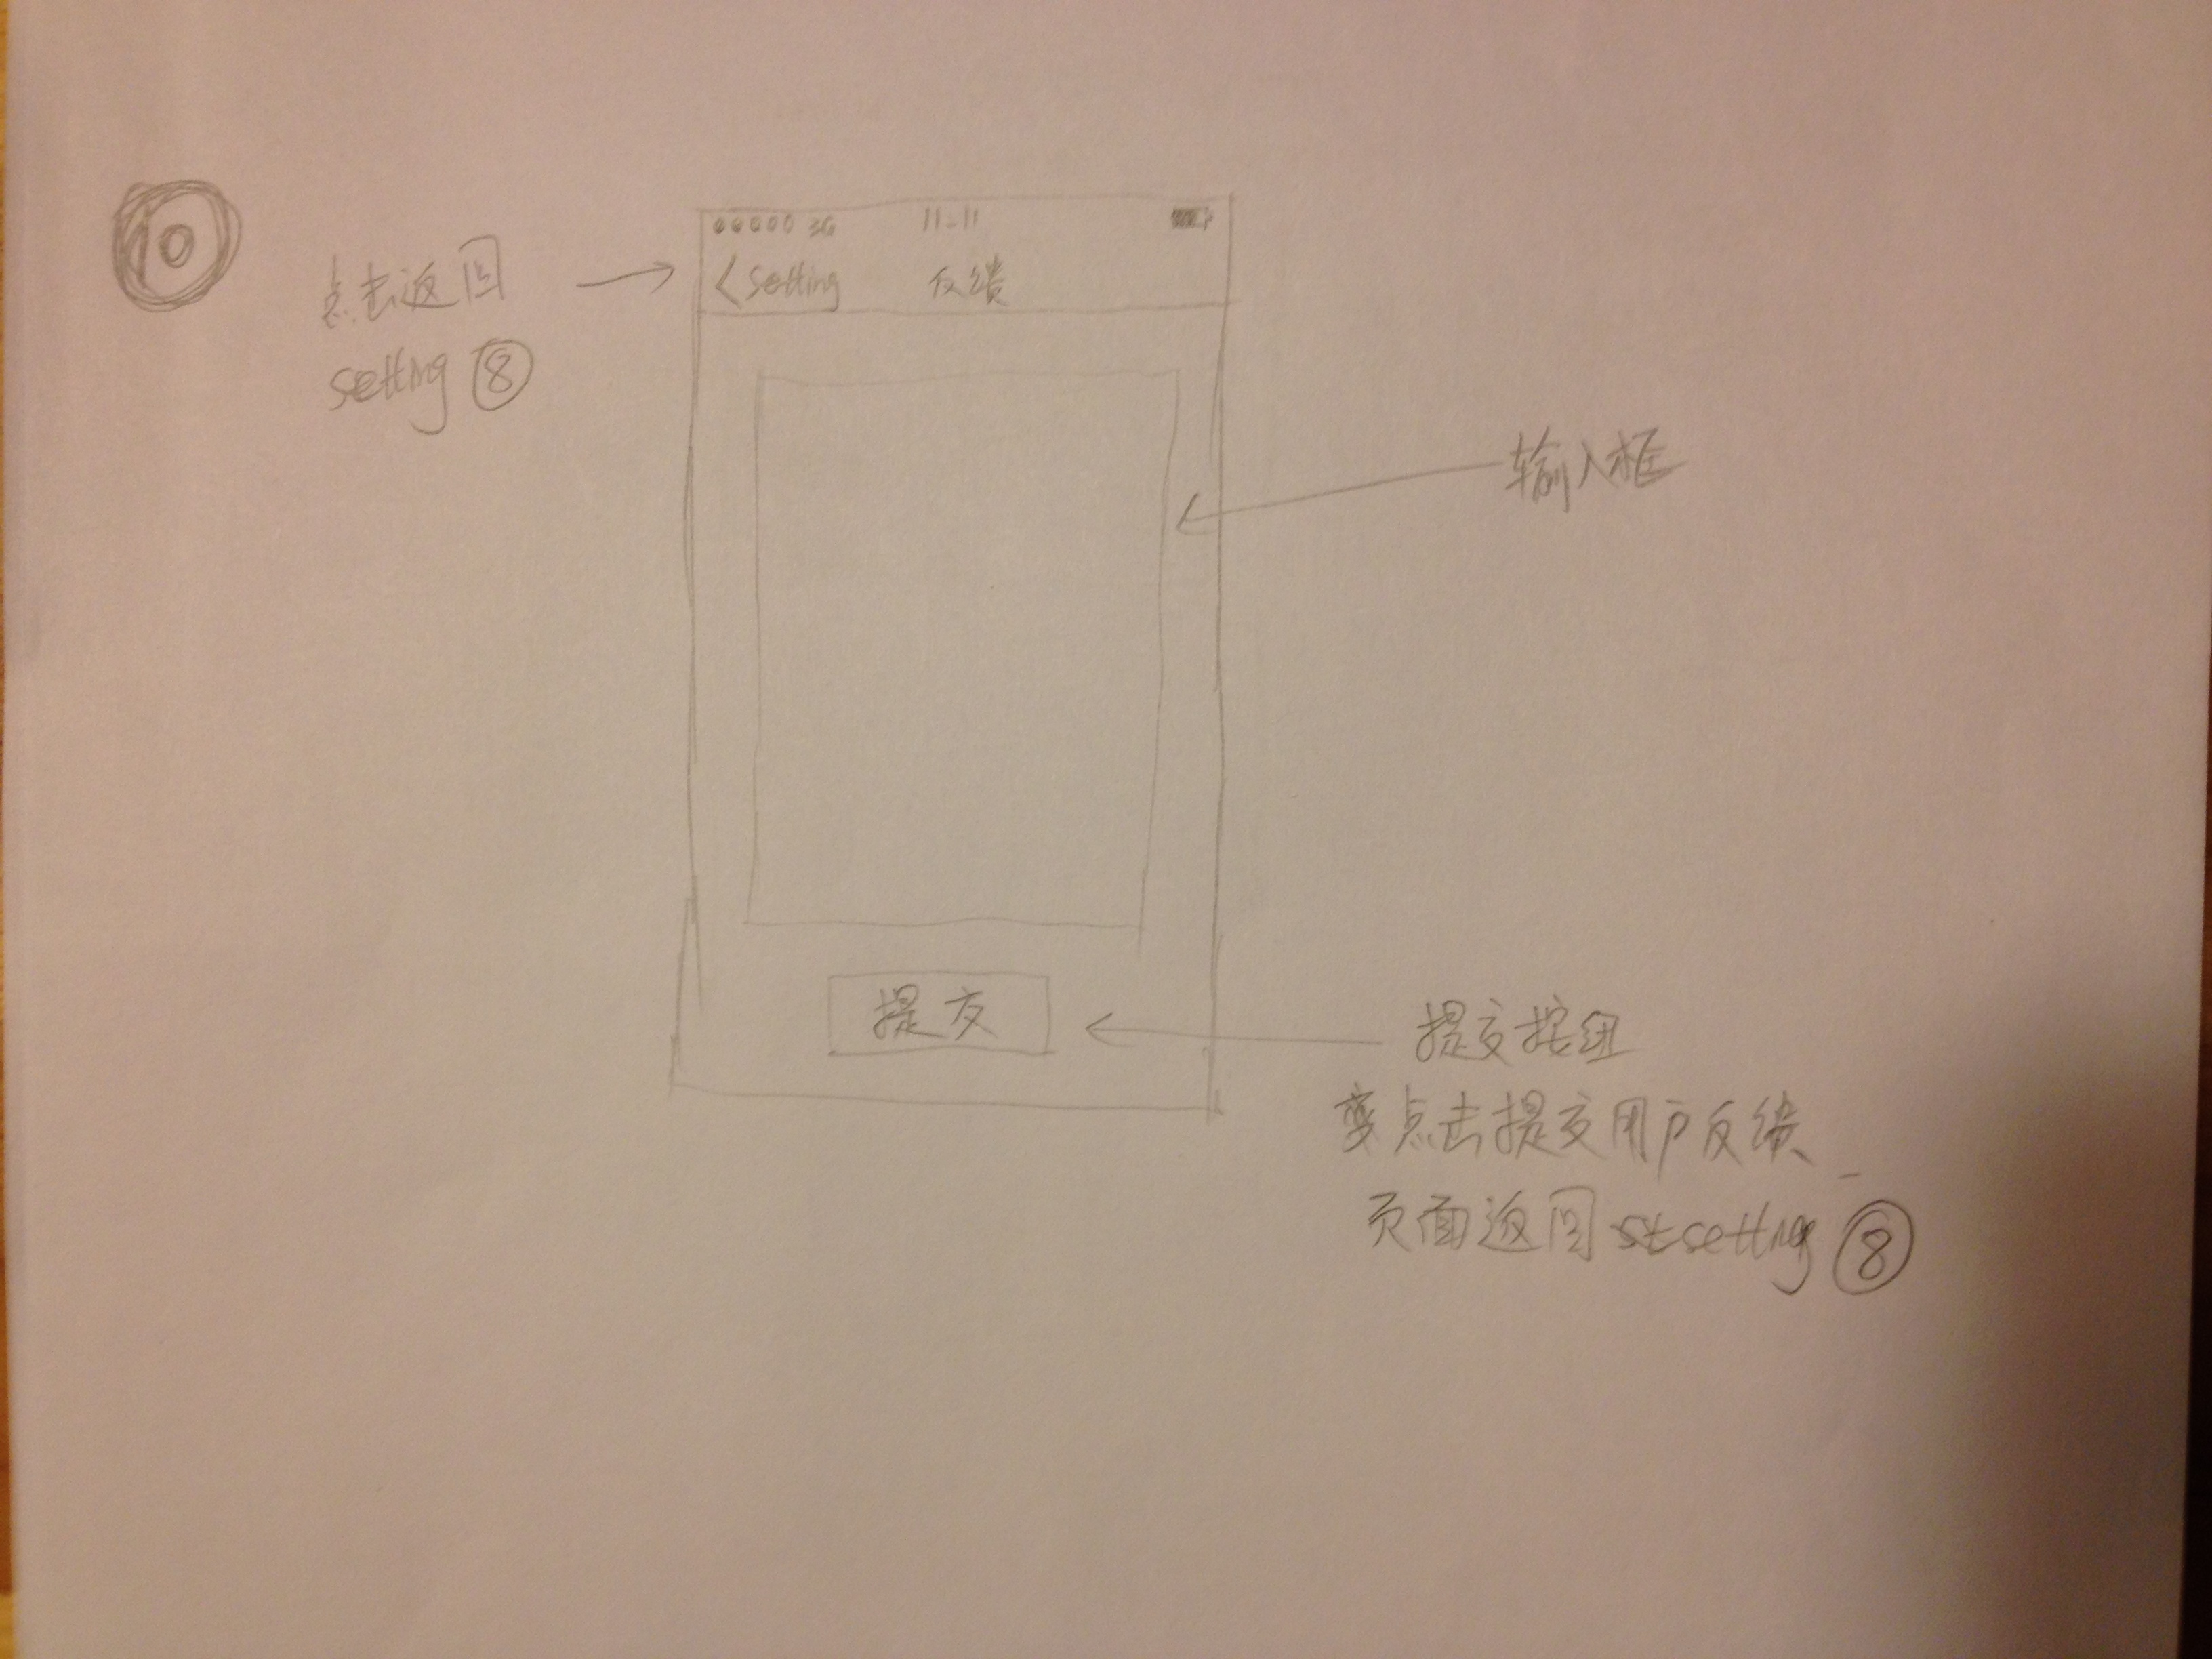 10
点击返回
setting ⑧
3G 11:11
< Setting 反馈
输入框
提交
提交按钮
点击提交用户反馈
页面返回 setting ⑧